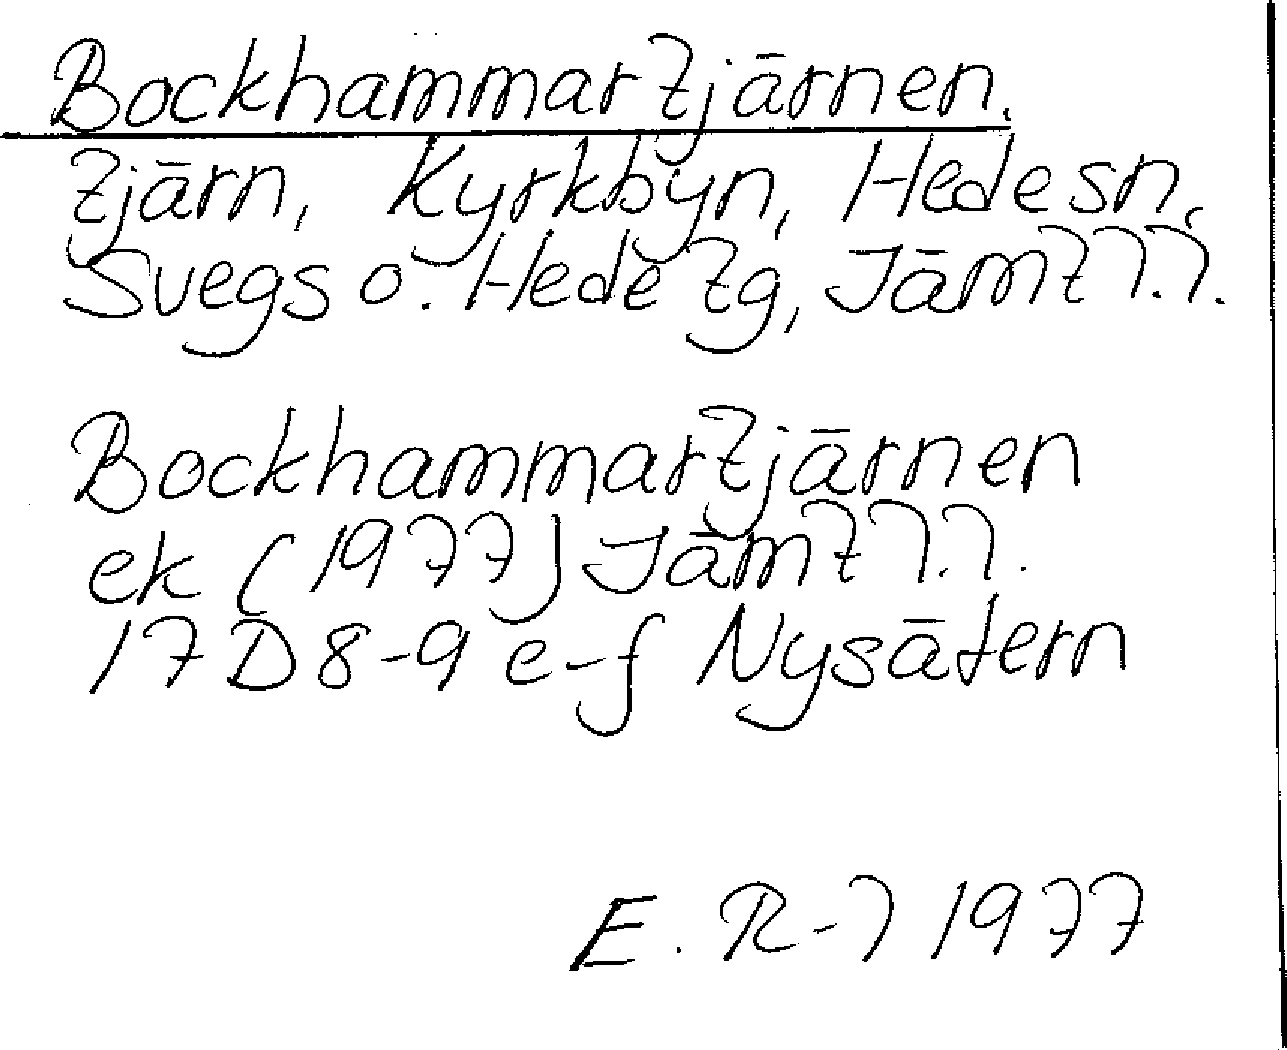 Bockhammartjärnen.
Tjärn, Kyrkbyn, Hede sn,
Svegs o. Hede tg, Jämtl.l.
Bockhammartjärnen
ek (1977) Jämtl.l.
17 D 8-9 e-f Nysätern
E. R-l 1977